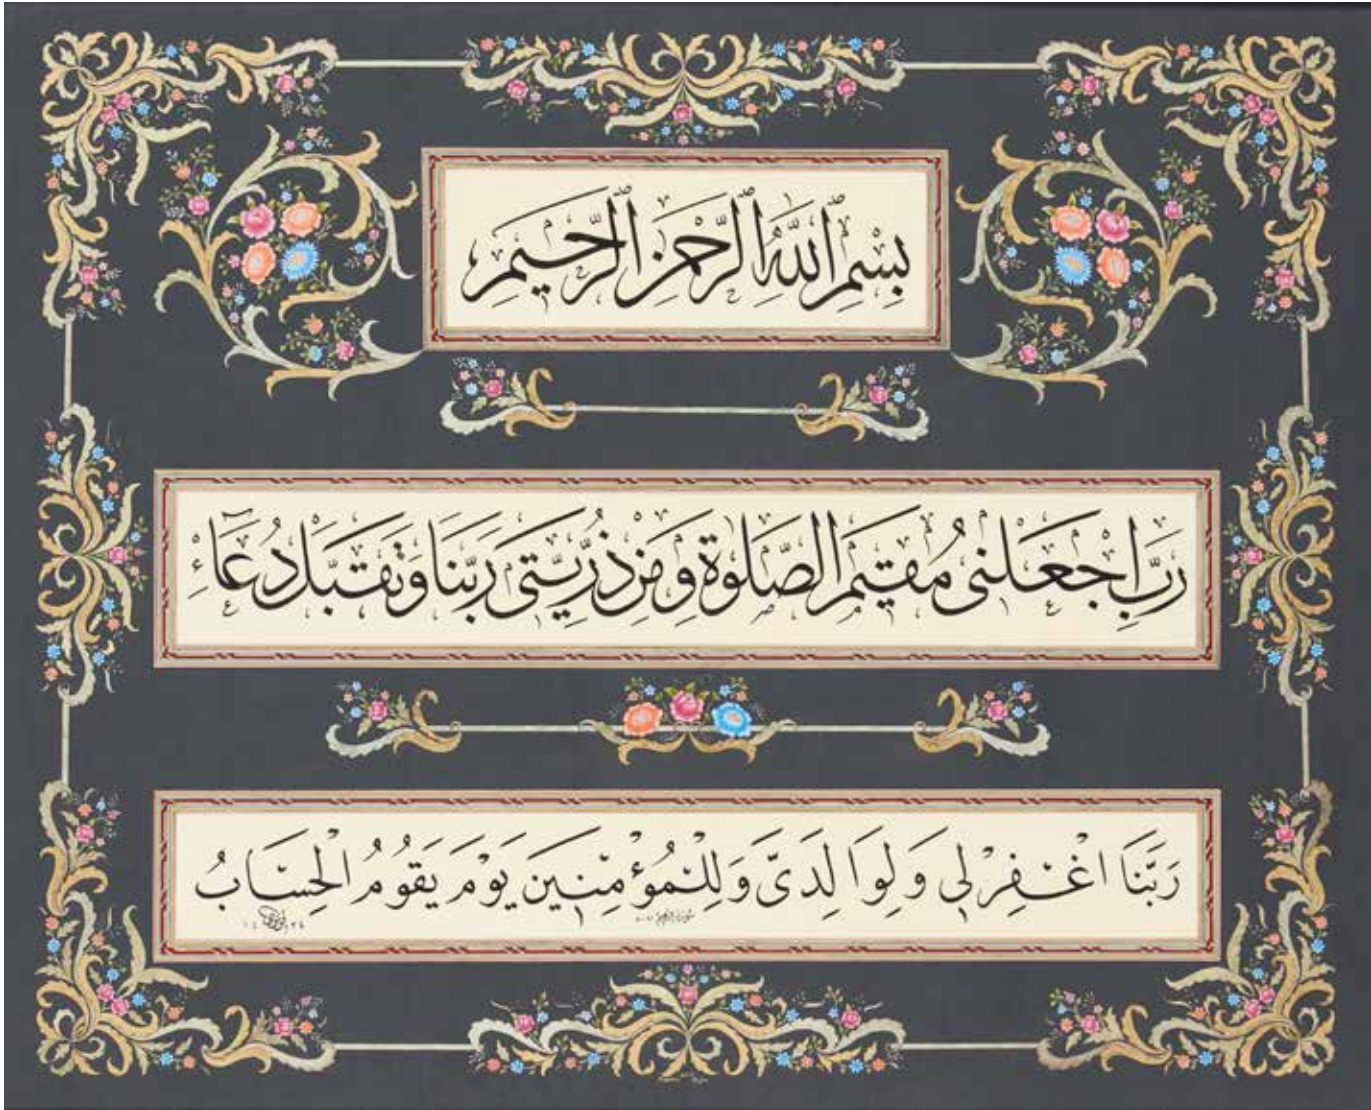 بِسْمِ اللّٰهِ الرَّحْمٰنِ الرَّحِيمِ
رَبِّ اجْعَلْنِى مُقِيمَ الصَّلٰوةِ وَمِنْ ذُرِّيَّتِى رَبَّنَا وَتَقَبَّلْ دُعَٓاءِ
رَبَّنَا اغْفِرْ لِى وَلِوَالِدَىَّ وَلِلْمُؤْمِنِينَ يَوْمَ يَقُومُ الْحِسَابُ